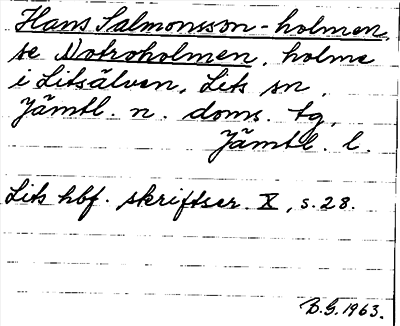 Hans Salmonsson-holmen,
se Notroholmen, holme
i Litsälven, Lits sn,
Jämtl. n. doms. tg,
Jämtl. l.
Lits hbf. skriftser. X, s. 28.
B.G. 1963.